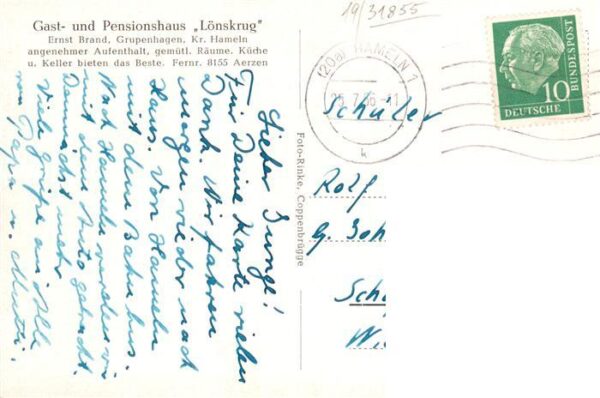 Gast- und Pensionshaus „Lönskrug"
Ernst Brand, Grupenhagen, Kr. Hameln
angenehmer Aufenthalt, gemütl. Räume. Küche
u. Keller bieten das Beste. Fernr. 8155 Aerzen
Lieber Junge!
Für Deine Karte vielen
Dank. Wir fahren
morgen wieder nach
Haus. Von Hameln
mit dem Bahnbus.
Nach Hameln werden wir
mit dem Auto gebracht.
Demnächst mehr
Viele Grüße an Alle
von Papa u. Mutti.
Foto-Rinke, Coppenbrügge
19/31855
(20a) HAMELN 1
25.7.56.-11
k
DEUTSCHE
BUNDESPOST
10
Schüler
Rolf
Sch